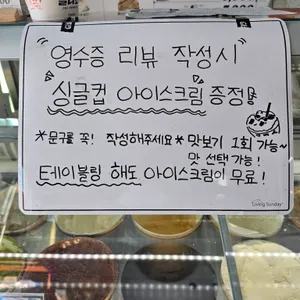 영수증 리뷰 작성시
싱글컵 아이스크림 증정
*문구를 꼭! 작성해주세요* 맛보기 1회 가능~
맛 선택 가능!
테이블링 해도 아이스크림이 무료!
Living Sunday